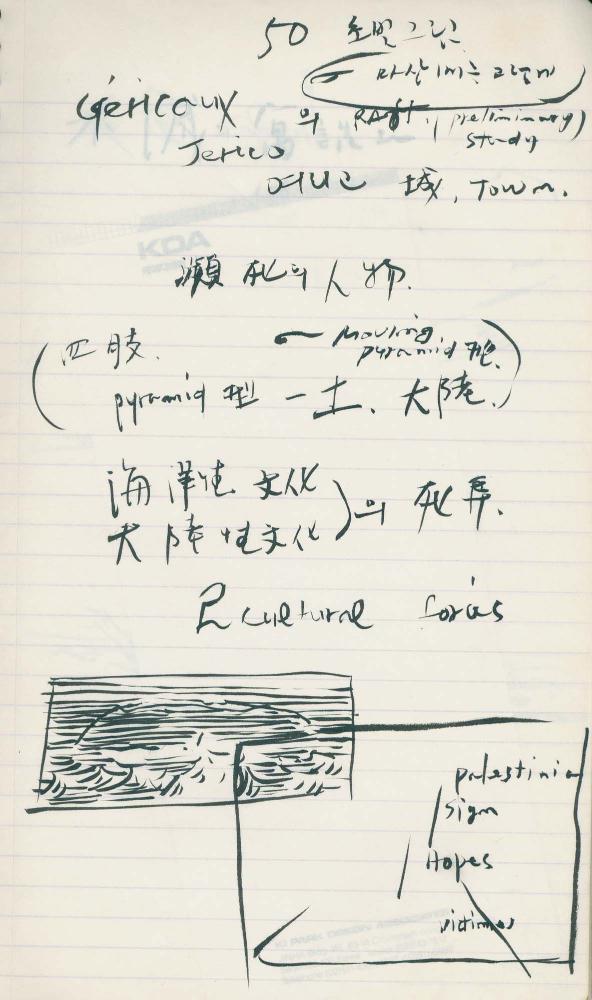 50 초벌그림
Géricaux 의 RAft, (preliminary)
study
Jerico
여리고 城, TOWN.
KDA
瀕死의 人物.
四肢.
moving
pyramid 型.
pyramid 型 — 土, 大陸.
海洋性 文化
大陸性文化 의 死
2 cultural forces
palestinia
sign
Hopes
victimes